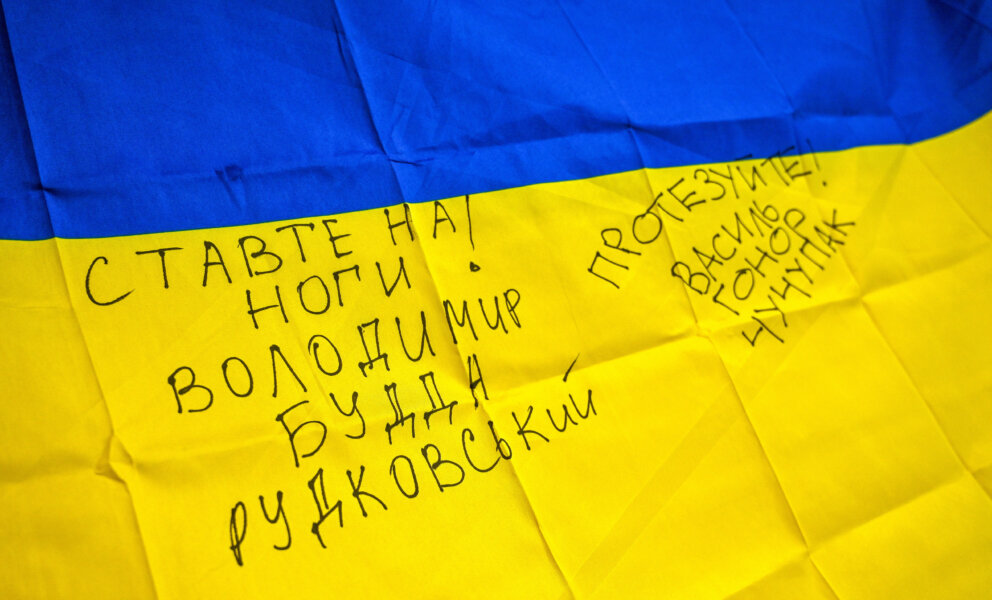 СТАВТЕ НА
НОГИ!
ВОЛОДИМИР
БУДДА
РУДКОВСЬКИЙ
ПРОТЕЗУЙТЕ!
ВАСИЛЬ
ГОНОР
ЧУЧУПАК